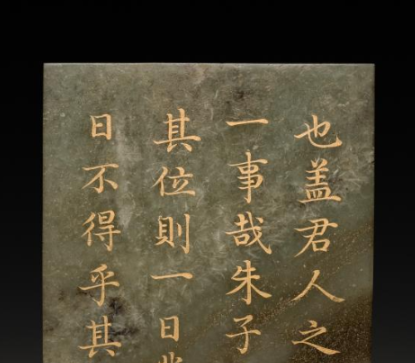 也盖君人之
一事哉朱子
其位則一日
日不得乎其